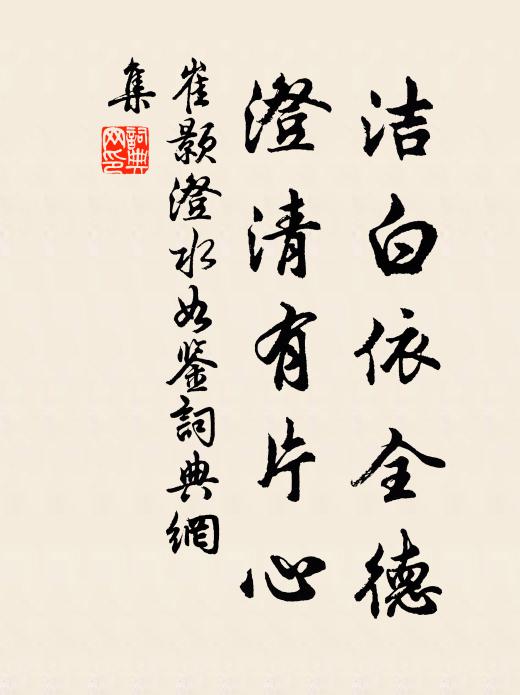 洁白依全德
澄清有片心
崔颢澄水如鉴詞典網
集
詞典网印